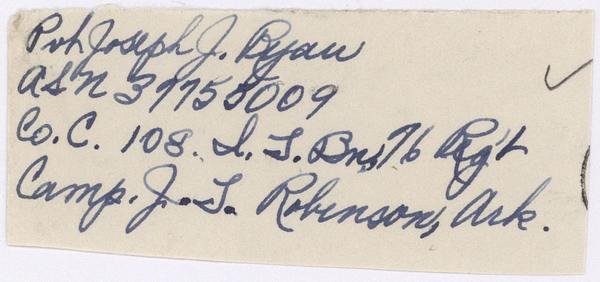 Pvt Joseph J. Ryan
ASN 37755009
Co. C. 108. I. T. Bn, 76 Reg't
Camp. J. T. Robinson, Ark.